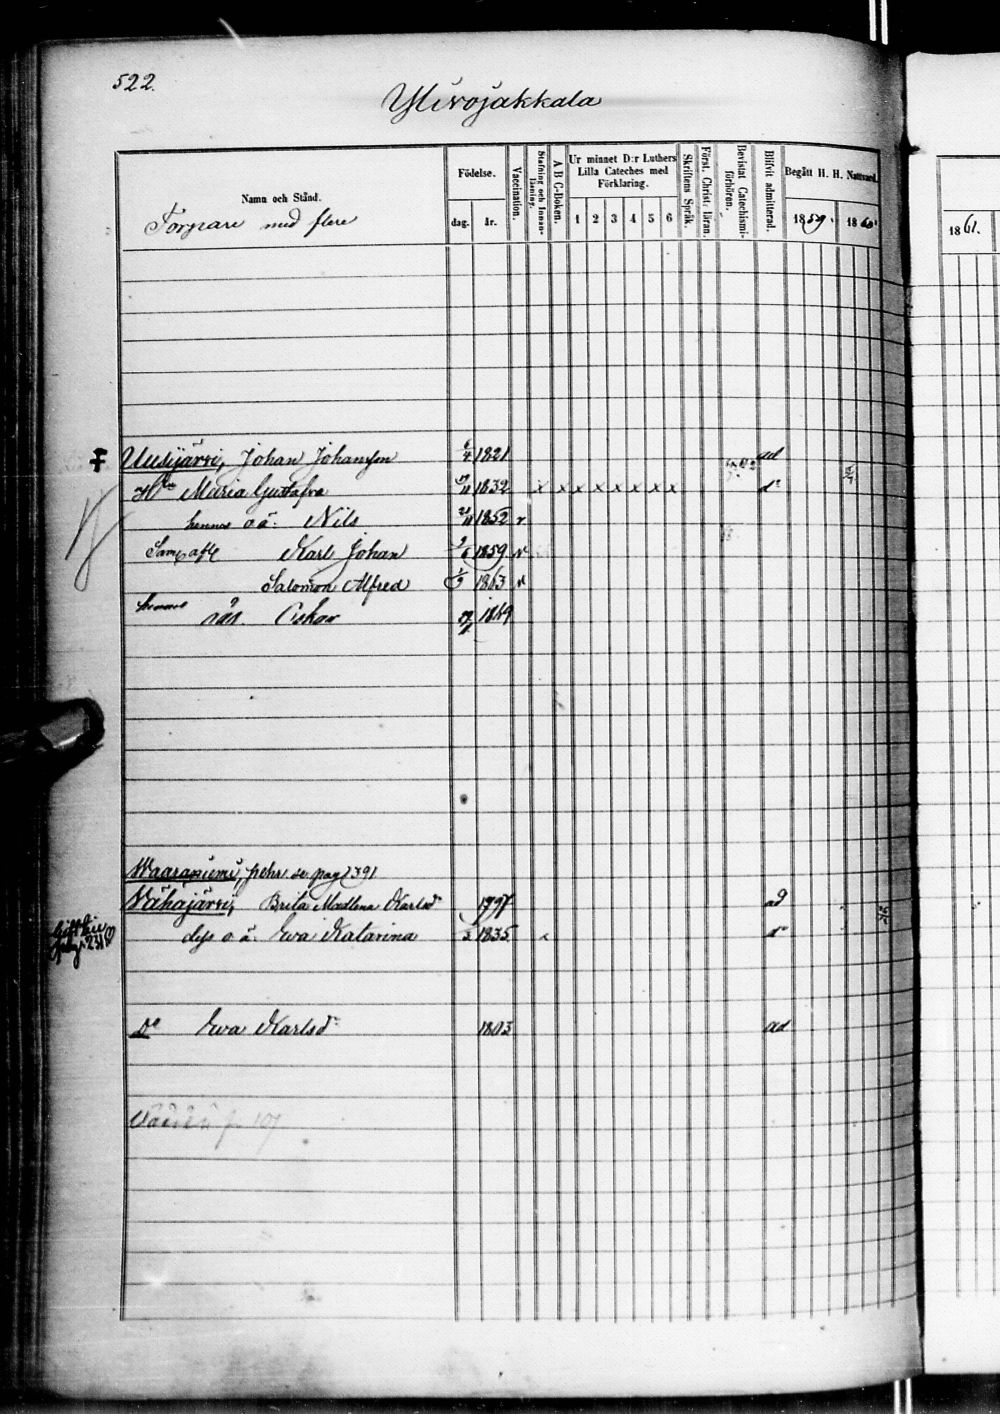 522.
Ylivojakkala
Namn och Stånd.
Torpare med flere
Födelse.
dag. år.
Vaccination.
Stafning och Innan-läsning.
A B C-Boken.
Ur minnet D:r Luthers Lilla Cateches med Förklaring.
1 2 3 4 5 6
Skriftens Språk.
Först. Christ. läran.
Bevistat Catechismi-förhören.
Blifvit admitterad.
Begått H. H. Nattvard.
1859. 1860.
1861.
Uusijärvi, Johan Johansson 6/4 1821 ad
Hu Maria Gustafva 1832 x x x x x x x x d:o
hennes o ä. Nils 1852 v
Karl Johan 1859 v
Salomon Alfred 1863 v
hennes son Oskar 1849
Waaraniemi, Pehr se pag 391
Vähäjärvi, Brita Madlena Karlsdr 1797 ad
dess o ä. Eva Katarina 1835 x d:o
D:o Eva Karlsdr 1803 ad